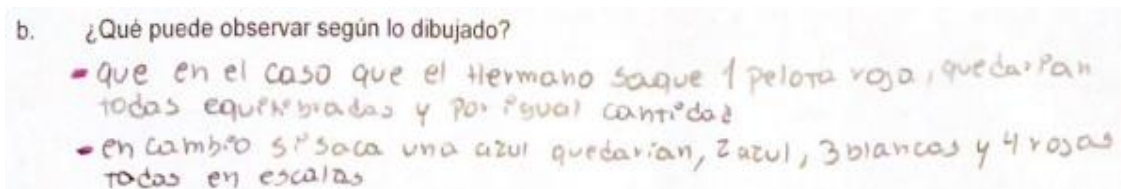 b. ¿Qué puede observar según lo dibujado?
- que en el caso que el Hermano saque 1 pelota roja, quedarian
todas equilibradas y por igual cantidad
- en cambio si saca una azul quedarian, 2 azul, 3 blancas y 4 rojas
todas en escalas